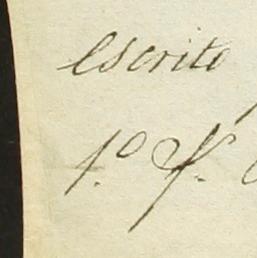 escrito
1.º